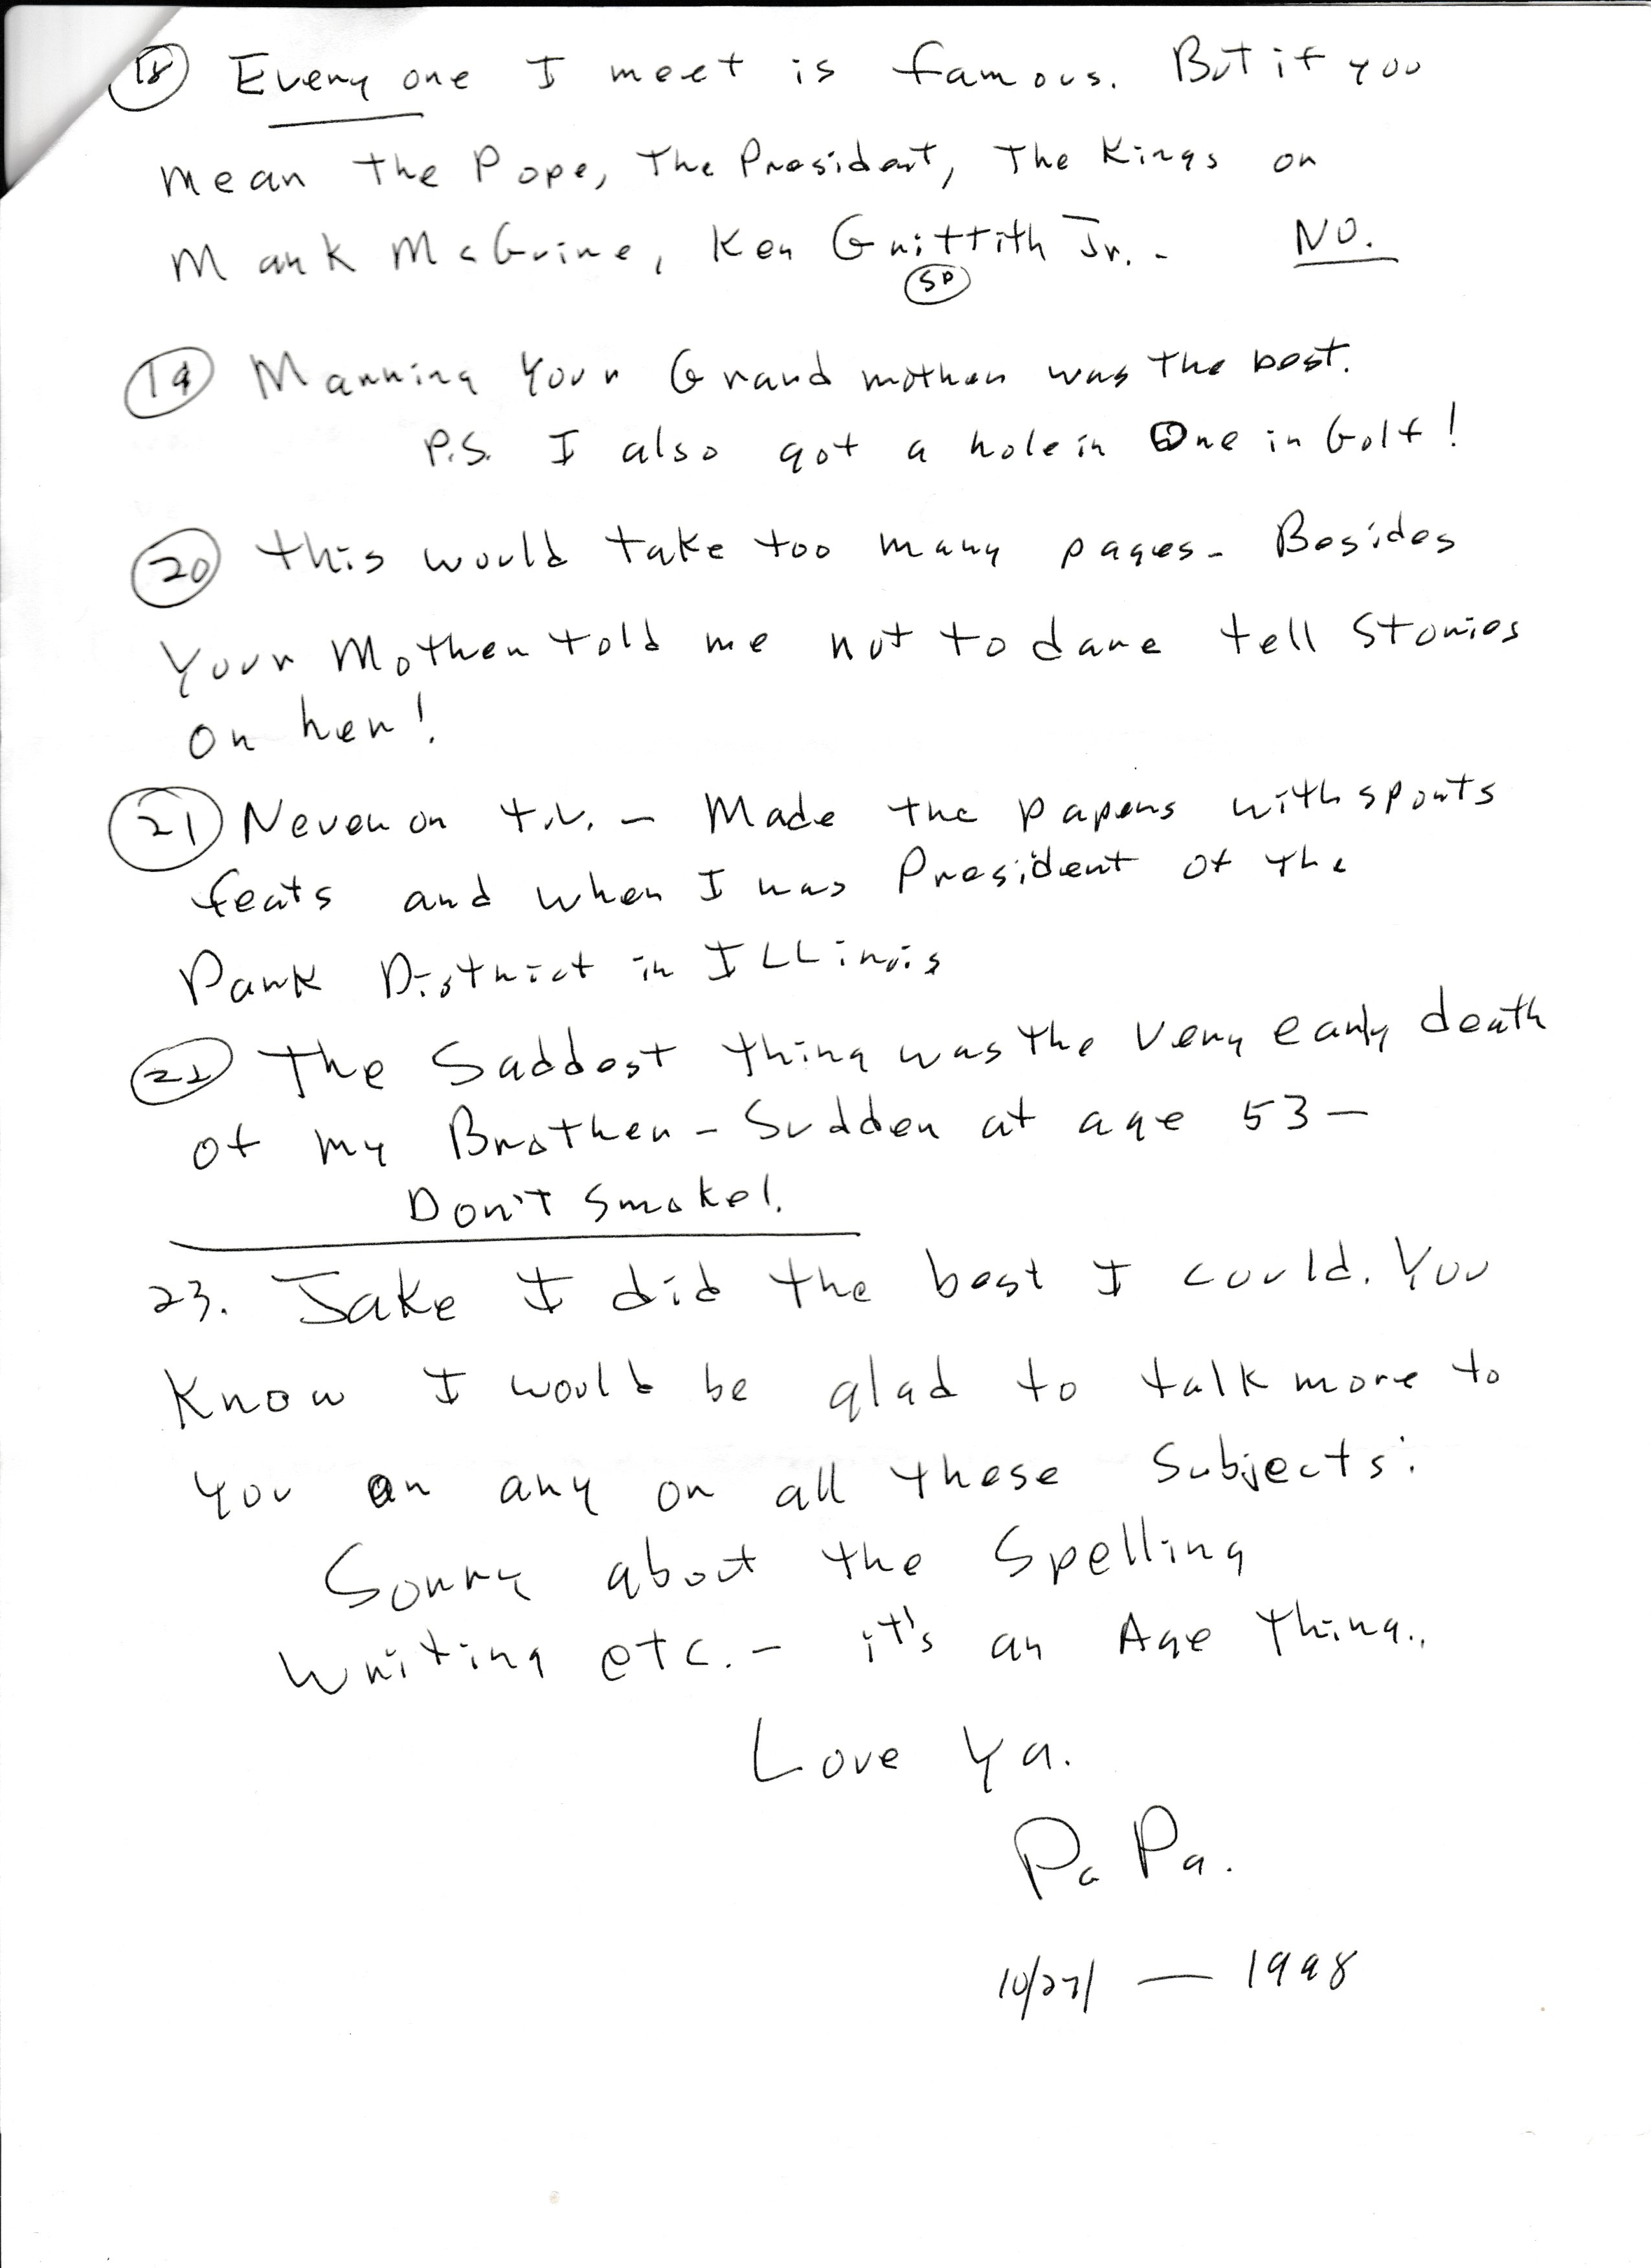 (18) Every one I meet is famous. But if you
mean the Pope, The President, The Kings or
Mark McGuire, Ken Griffith Jr. - NO.
(SP)
(19) Marrying Your Grand mother was the best.
P.S. I also got a hole in One in Golf!
(20) This would take too many pages - Besides
Your Mother told me not to dare tell Stories
on her!
(21) Never on t.v. - Made the papers with sports
feats and when I was President of the
Park District in ILLinois
(22) The Saddest thing was the very early death
of my Brother - Sudden at age 53 -
Don't Smoke!
23. Jake I did the best I could. You
Know I would be glad to talk more to
you on any or all these Subjects.
Sorry about the Spelling
Writing etc. - it's an Age Thing..
Love Ya.
Pa Pa.
10/27/ — 1998